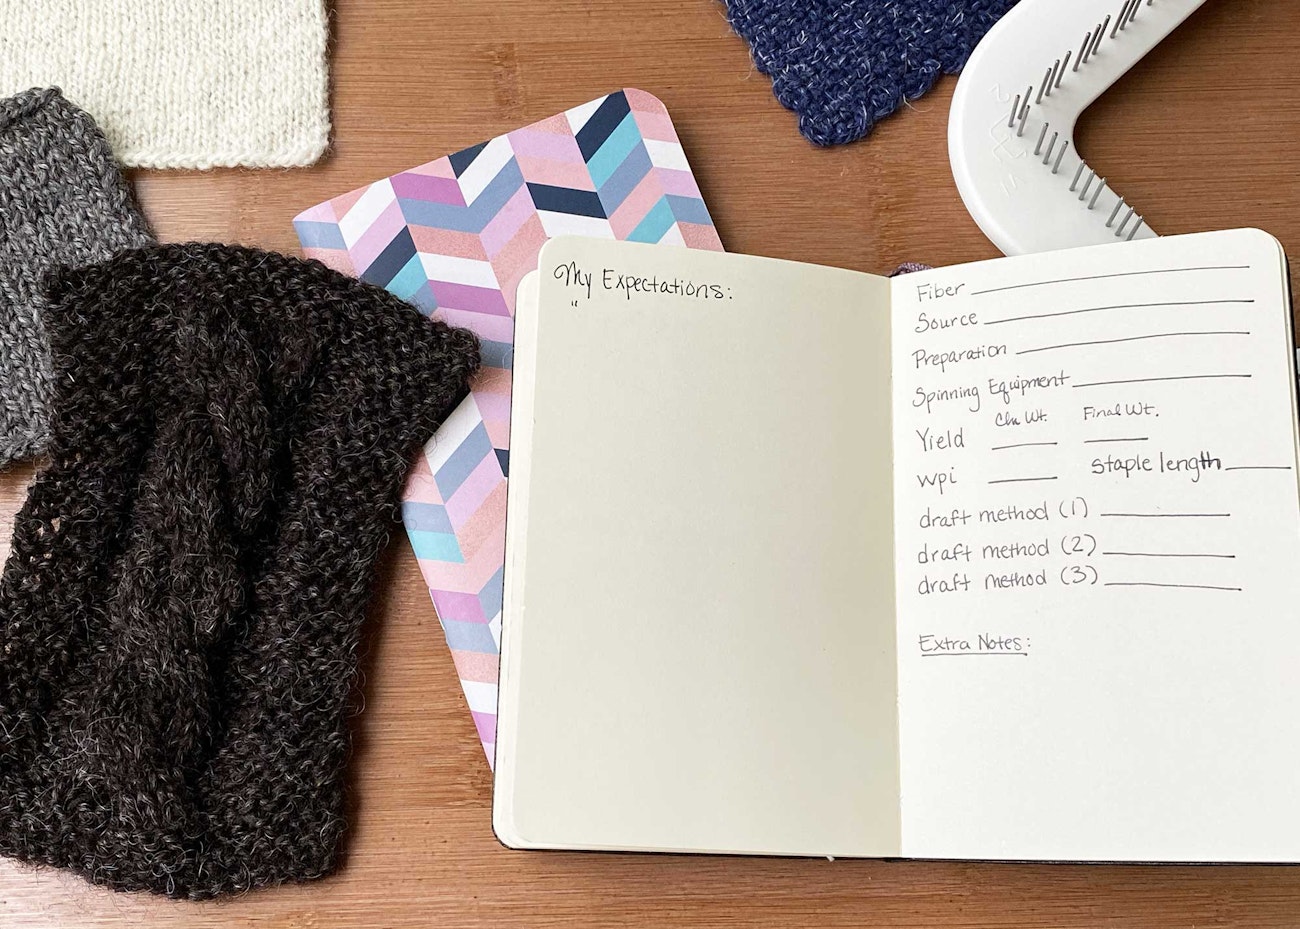 My Expectations:
"
Fiber
Source
Preparation
Spinning Equipment
Cln Wt. Final Wt.
Yield
wpi staple length
draft method (1)
draft method (2)
draft method (3)
Extra Notes: